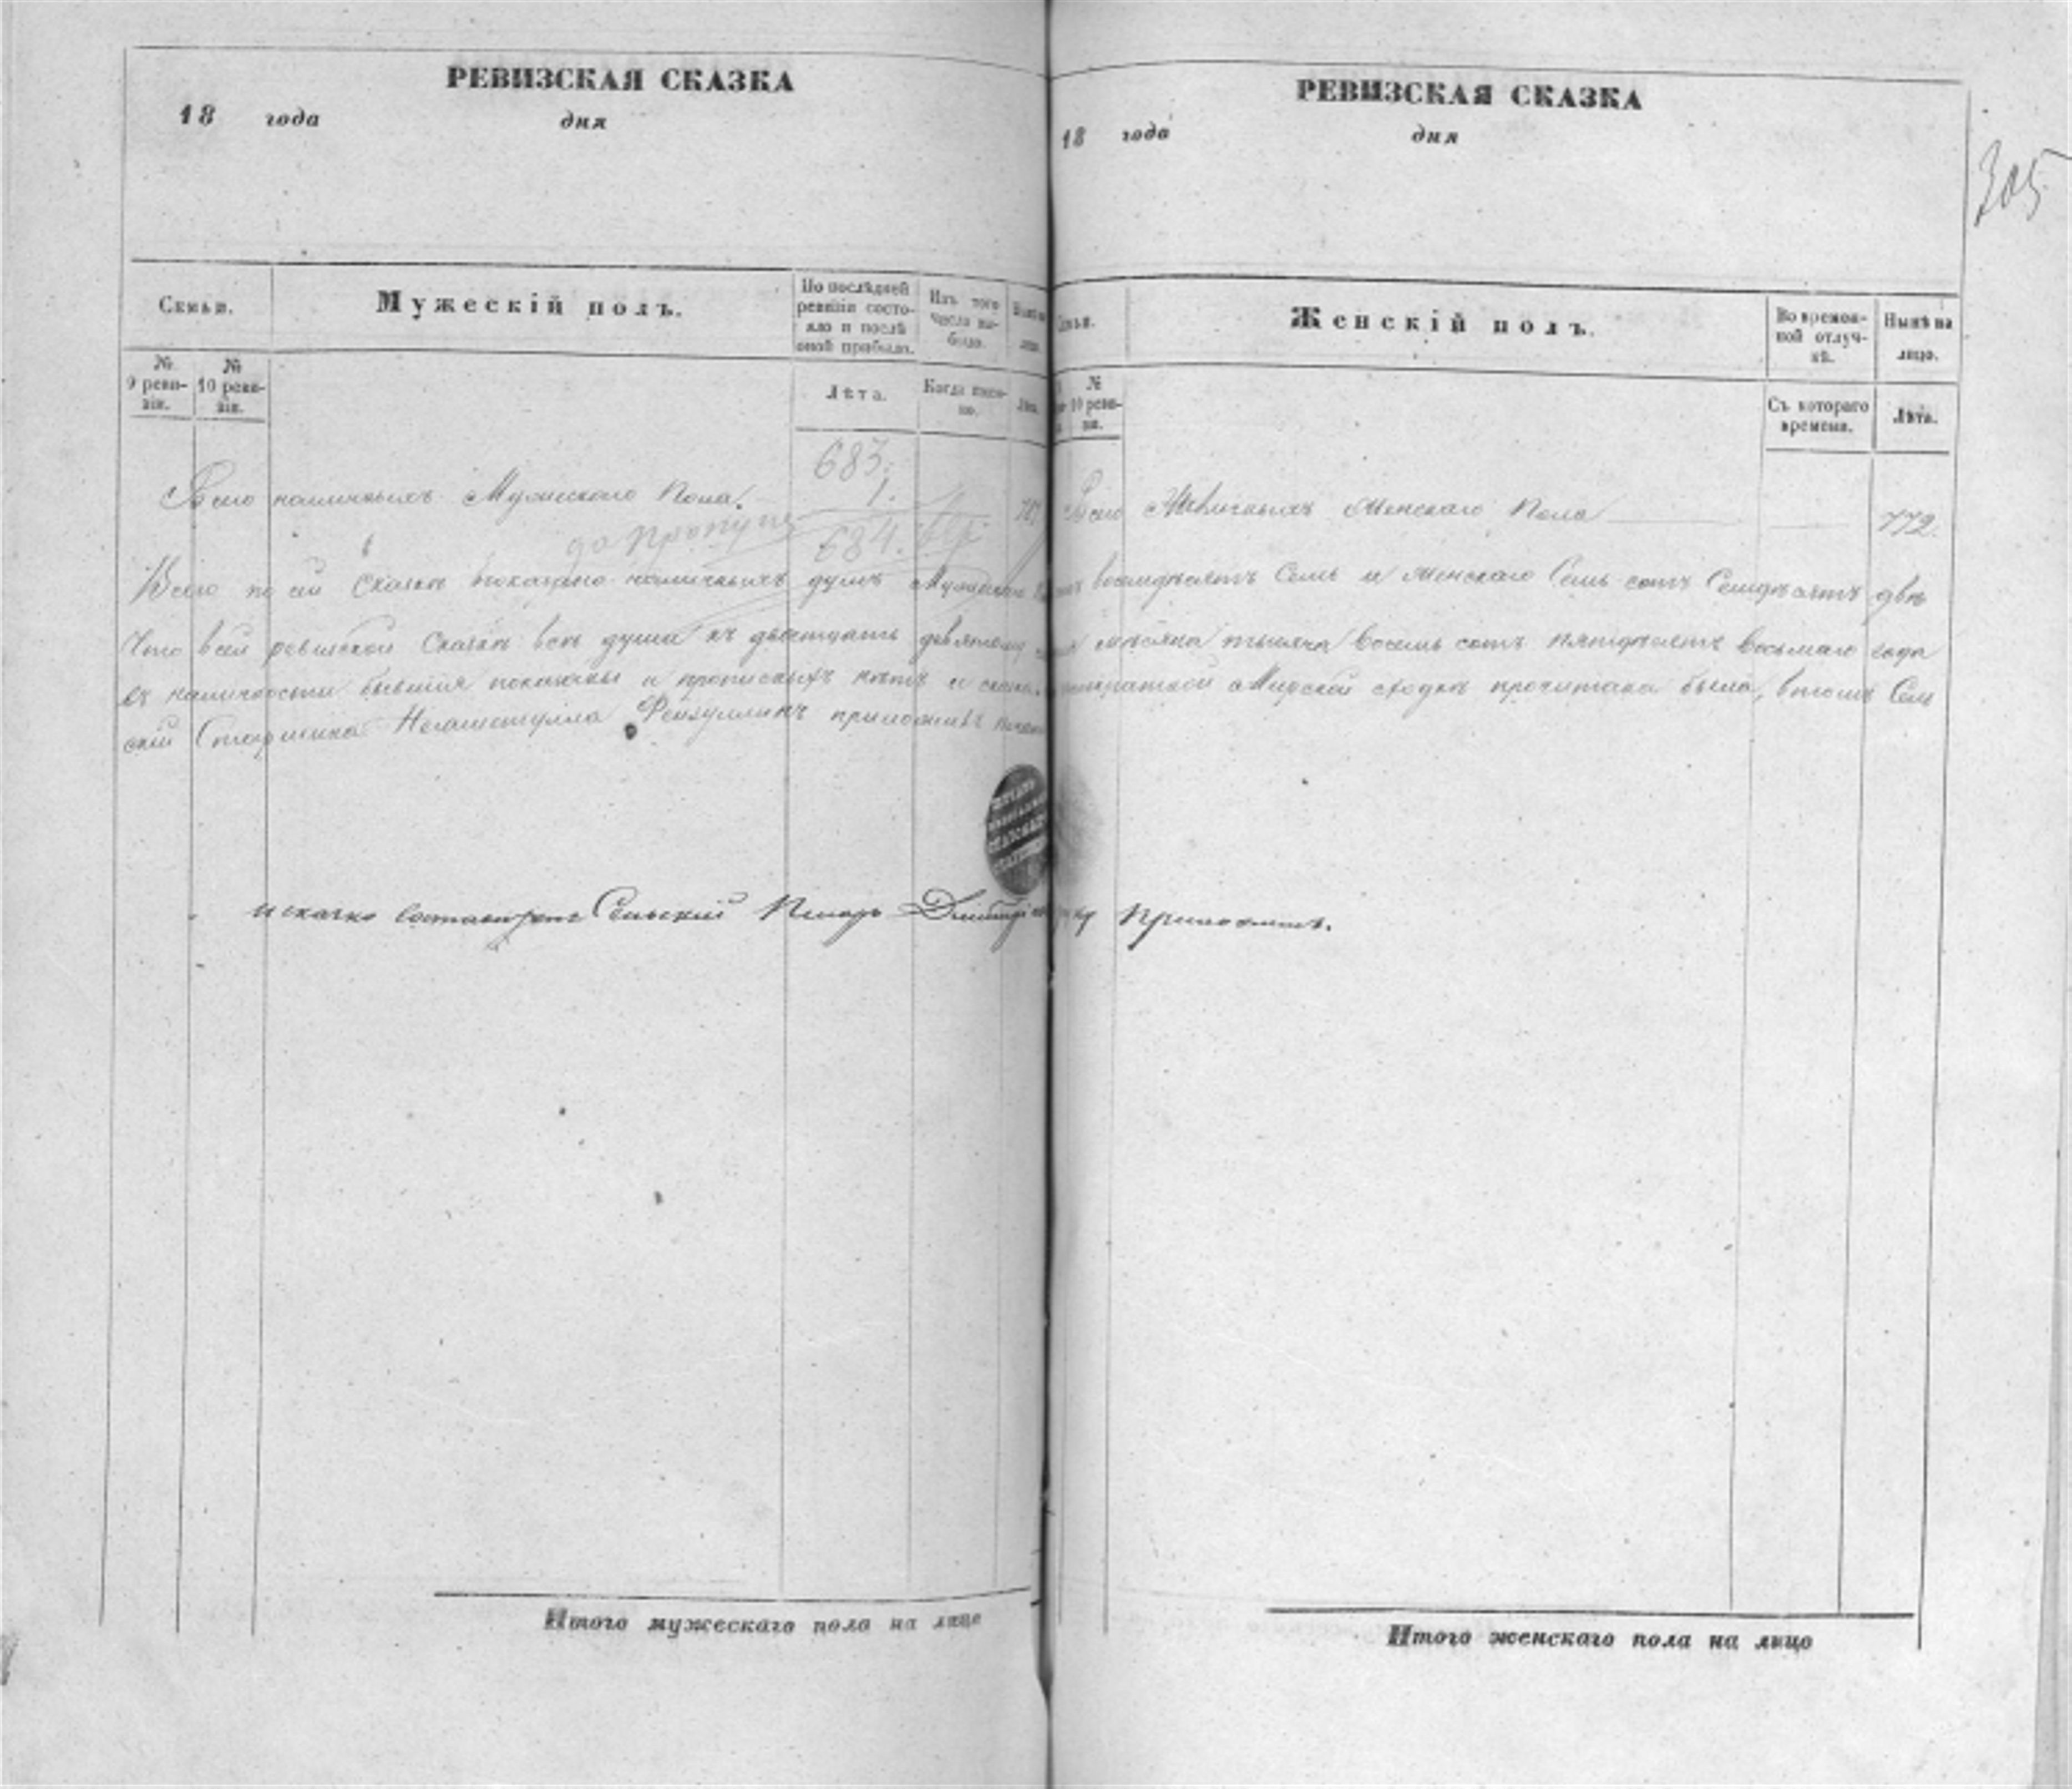 РЕВИЗСКАЯ СКАЗКА
18 года дня
Семьи.
Мужескій полъ.
По послѣдней ревизіи состояло и послѣ оной прибыло.
Изъ того числа выбыло.
№ 9 ревизіи.
№ 10 ревизіи.
Лѣта.
683.
1.
Всего наличныхъ Мужескаго Пола
684.
Всего по сей Сказкѣ показано наличныхъ душъ Мужескаго
Что всей ревизской Сказкѣ всѣ души къ двадцать девятому
въ наличности бывшия показаны и прописныхъ нѣтъ и
скій Старшина Фейзуллинъ приложилъ
и сказку Сельскій Писарь
РЕВИЗСКАЯ СКАЗКА
18 года дня
305
Женскій полъ.
Во временной отлучкѣ.
Нынѣ на лицо.
№ 10 ревизіи.
Съ котораго времени.
Лѣта.
Всего Наличныхъ Женскаго Пола 772.
восмидѣсятъ Семь и Женскаго Семь сотъ Семидѣсятъ двѣ
мѣсяца тысяча восемь сотъ пятидѣсятъ восьмаго года
Мирской сходкѣ прочитана была, втомъ Сель
Приложилъ.
Итого мужескаго пола на лицо
Итого женскаго пола на лицо